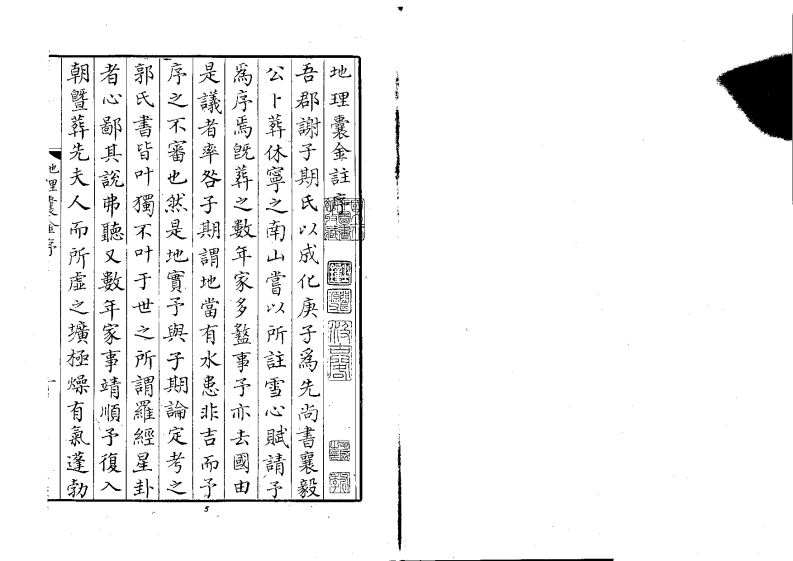 地理囊金註序
吾郡謝子期氏以成化庚子爲先尚書襄毅
公卜葬休寧之南山嘗以所註雪心賦請予
爲序焉旣葬之數年家多盭事予亦去國由
是議者率咎子期謂地當有水患非吉而予
序之不審也然是地實予與子期論定考之
郭氏書皆叶獨不叶于世之所謂羅經星卦
者心鄙其說弗聽又數年家事靖順予復入
朝暨葬先夫人而所虛之壙極燥有氣蓬勃
地理囊金序
一
5